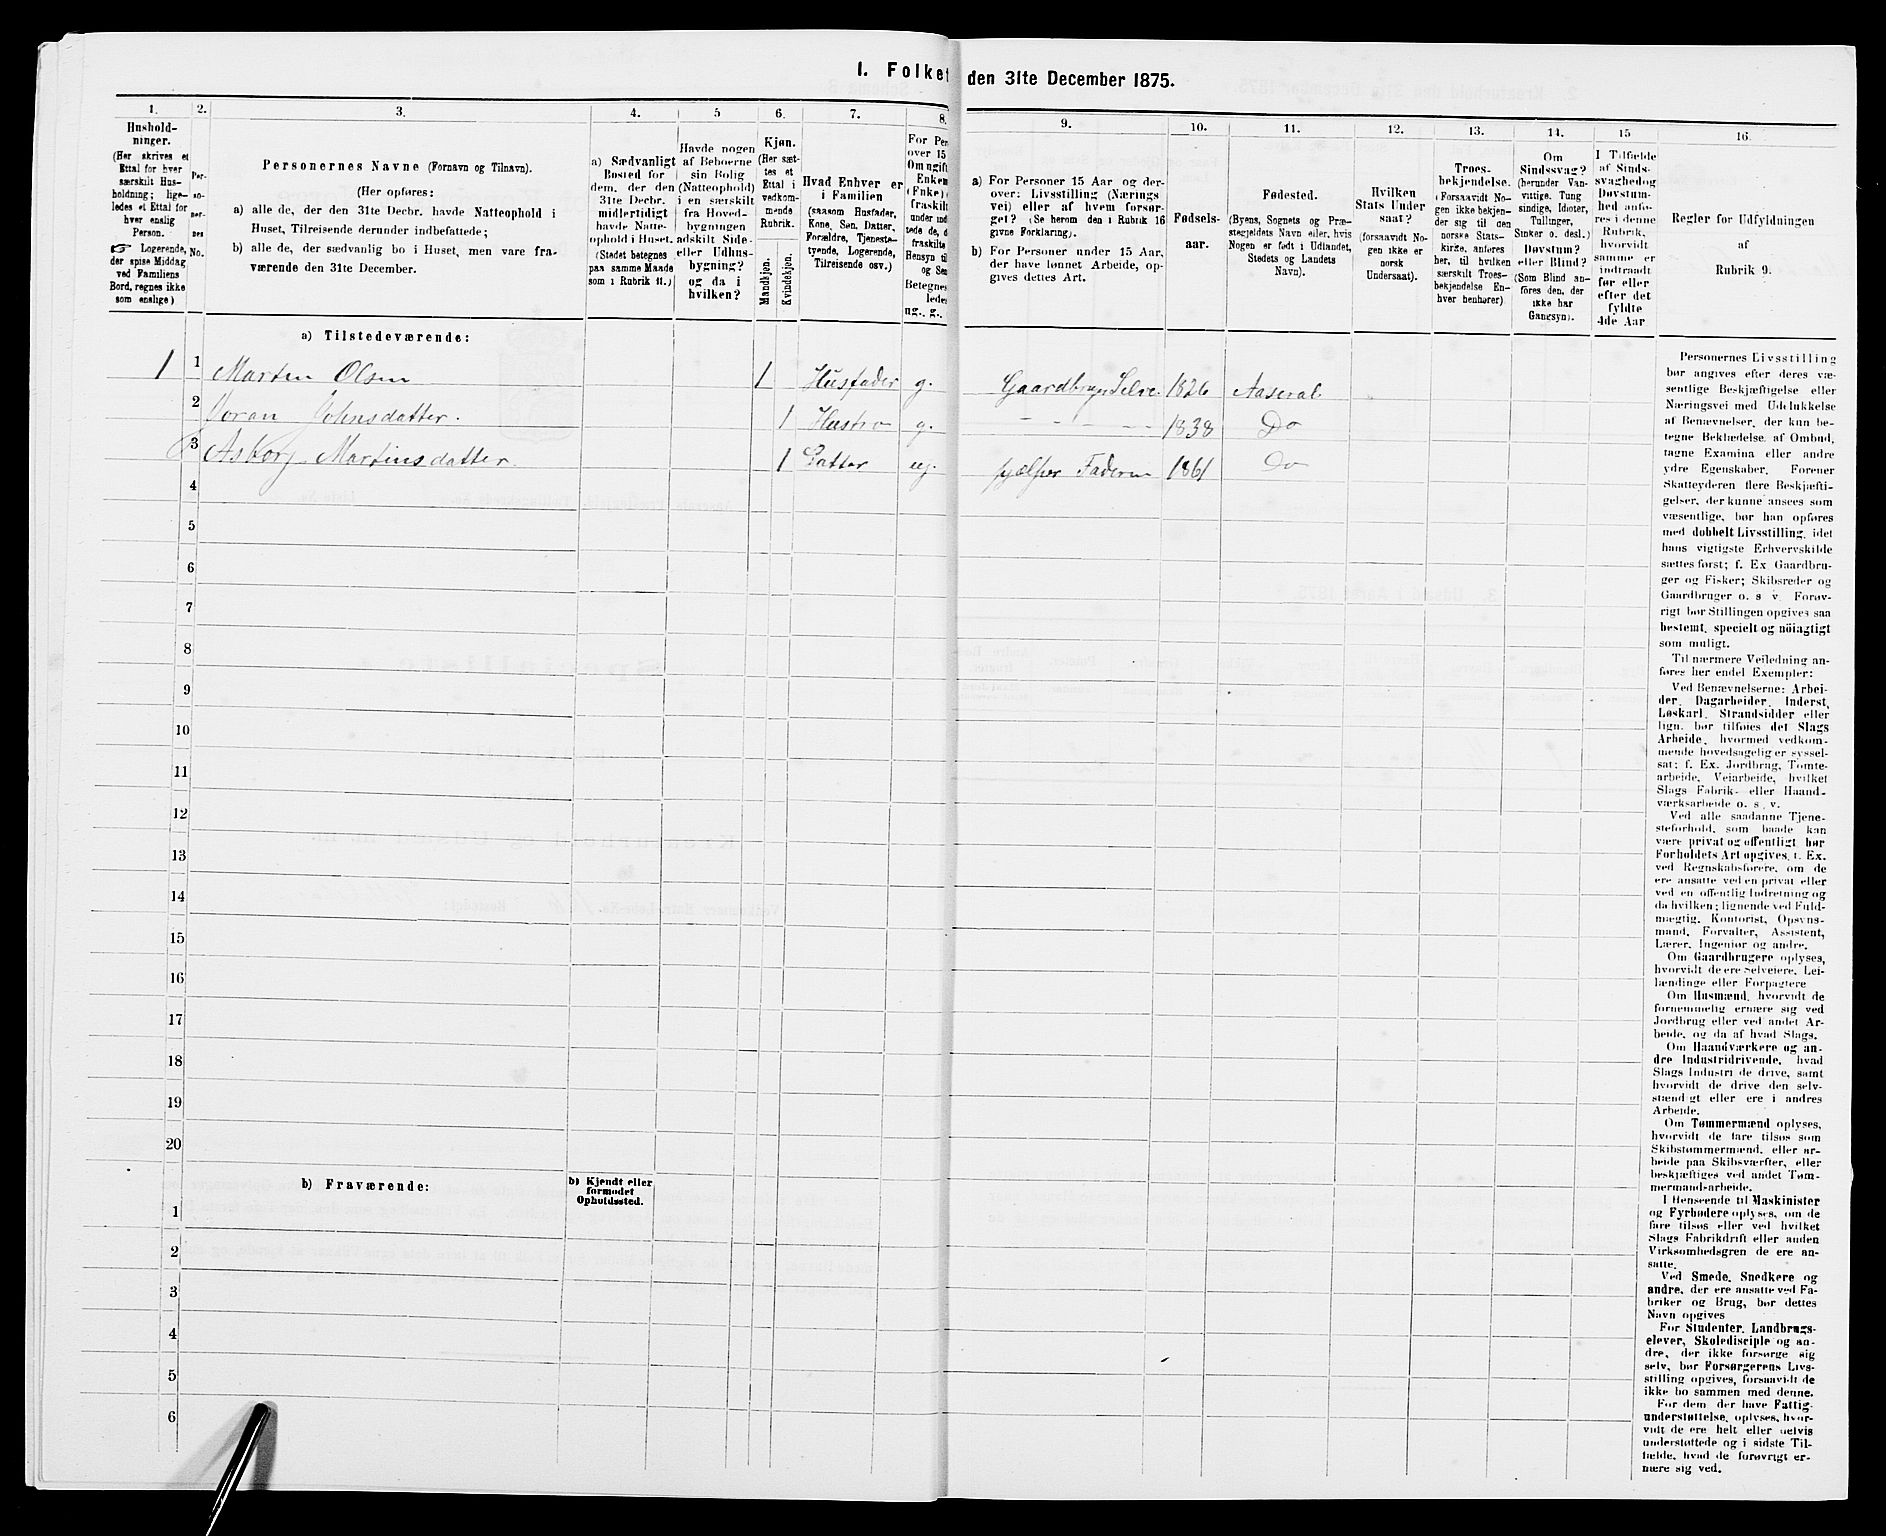 1. Folket
den 31te December 1875.
1.
2.
3.
4.
5
6.
7.
8.
9.
10.
11.
12.
13.
14.
15
16.
Hushold-
ninger.
(Her skrives et
Ettal for hver
særskilt Hus-
holdning; lige-
ledes et Ettal for
hver enslig
Person.
☞ Logerende,
der spise Middag
ved Familiens
Bord, regnes ikke
som enslige)
Per-
so-
ner-
nes
No.
Personernes Navne (Fornavn og Tilnavn).
(Her opføres:
a) alle de, der den 31te Decbr. havde Natteophold i
Huset, Tilreisende derunder indbefattede;
b) alle de, der sædvanlig bo i Huset, men vare fra-
værende den 31te December.
a) Sædvanligt
Bosted for
dem, der den
31te Decbr.
midlertidigt
havde Natte-
ophold i Huset.
(Stedet betegnes
paa samme Maade
som i Rubrik 11.)
Havde nogen
af Beboerne
sin Bolig
(Natteophold)
i en særskilt
fra Hoved-
bygningen
adskilt Side-
eller Udhus-
bygning?
og da i
hvilken?
Kjøn.
(Her sæt-
tes et
Ettal i
vedkom-
mende
Rubrik.
Mandkjøn.
Kvindekjøn.
Hvad Enhver er
i Familien
(saasom Husfader,
Kone, Søn, Datter,
Forældre, Tjeneste-
tyende, Logerende,
Tilreisende osv.)
For Per
over 15
Om ugift
Enken
(Enke)
fraskilt
under ind
tede de,
fraskilte
Hensyn til
og Sen
Betegnes
ledes
ug., g.,
a) For Personer 15 Aar og der-
over: Livsstilling (Nærings-
vei) eller af hvem forsør-
get? (Se herom den i Rubrik 16
givne Forklaring).
b) For Personer under 15 Aar,
der have lønnet Arbeide, op-
gives dettes Art.
Fødsels-
aar.
Fødested.
(Byens, Sognets og Præ-
stegjeldets Navn eller, hvis
Nogen er født i Udlandet,
Stedets og Landets
Navn).
Hvilken
Stats Under
saat?
(forsaavidt No-
gen ikke er
norsk
Undersaat).
Troes-
bekjendelse.
(Forsaavidt No-
gen ikke bekjen-
der sig til den
norske Stats-
kirke, anføres
her, til hvilken
særskilt Troes-
bekjendelse En-
hver henhører).
Om
Sindssvag?
(herunder Van-
vittige, Tung
sindige, Idioter,
Tullinger,
Sinker o. desl.)
Døvstum?
eller Blind?
(Som Blind an-
føres den, der
ikke har
Gangsyn).
I Tilfælde
af Sinds-
svaghed og
Døvstum-
hed anfø-
res i denne
Rubrik,
hvorvidt
samme er
indtraadt
før eller
efter det
fyldte
4de Aar
Regler for Udfyldningen
af
Rubrik 9.
a) Tilstedeværende:
1 1 Marten Olsen 1 Husfader g. Gaardbruger Selve. 1826 Aaseral
2 Joran Johnsdatter. 1 Hustro g. - - - - 1838 Do
3 Asborg Martinsdatter. 1 Datter ug. hjælper Faderen 1861 Do
4
5
6
7
8
9
10
11
12
13
14
15
16
17
18
19
20
b) Fraværende:
b) Kjendt eller
formodet
Opholdssted.
1
2
3
4
5
6
Personernes Livsstilling
bør angives efter deres væ-
sentlige Beskjæftigelse eller
Næringsvei med Udelukkelse
af Benævnelser, der kun be-
tegne Beklædelse af Ombud,
tagne Examina eller andre
ydre Egenskaber. Forener
Skatteyderen flere Beskjæfti-
gelser, der kunne ansees som
væsentlige, bør han opføres
med dobbelt Livsstilling, idet
hans vigtigste Erhvervskilde
sættes først; f. Ex Gaardbru-
ger og Fisker; Skibsreder og
Gaardbruger o. s v. Forøv-
rigt bør Stillingen opgives saa
bestemt, specielt og nøiagtigt
som muligt.
Til nærmere Veiledning an-
føres her endel Exempler:
Ved Benævnelserne: Arbei-
der, Dagarbeider, Inderst,
Løskarl, Strandsidder eller
lign. bør tilføres det Slags
Arbeide, hvormed vedkom-
mende hovedsagelig er syssel-
sat; f. Ex. Jordbrug, Tomte-
arbeide, Veiarbeide, hvilket
Slags Fabrik- eller Haand-
værksarbeide o. s. v.
Ved alle saadanne Tjene-
steforhold, som baade kan
være privat og offentligt bør
Forholdets Art opgives, f. Ex.
ved Regnskabsførere, om de
ere ansatte ved en privat eller
ved en offentlig Indretning og
da hvilken; lignende ved Fuld-
mægtig, Kontorist, Opsyns-
mand, Forvalter, Assistent,
Lærer, Ingeniør og andre.
Om Gaardbrugere oplyses,
hvorvidt de ere Selveiere, Lei-
lændinge eller Forpagtere
Om Husmænd, hvorvidt de
fornemmelig ernære sig ved
Jordbrug eller ved andet Ar-
beide, og da af hvad Slags.
Om Haandværkere og an-
dre Industridrivende, hvad
Slags Industri de drive, samt
hvorvidt de drive den selv-
stændigt eller ere i andres
Arbeide.
Om Tømmermænd oplyses,
hvorvidt de fare tilsøs som
Skibstømmermænd, eller ar-
beide paa Skibsværfter, eller
beskjæftiges ved andet Tøm-
mermandsarbeide.
I Henseende til Maskinister
og Fyrbødere oplyses, om de
fare tilsøs eller ved hvilket
Slags Fabrikdrift eller anden
Virksomhedsgren de ere an-
satte.
Ved Smede, Snedkere og
andre, der ere ansatte ved Fa-
briker og Brug, bør dettes
Navn opgives
For Studenter, Landbrugs-
elever, Skoledisciple og an-
dre, der ikke forsørge sig
selv, bør Forsørgerens Livs-
stilling opgives, forsaavidt de
ikke bo sammen med denne.
For dem der have Fattig-
understøttelse, oplyses, hvor-
vidt de ere helt eller delvis
understøttede og i sidste Til-
fælde, hvad de forøvrigt er-
nære sig ved.